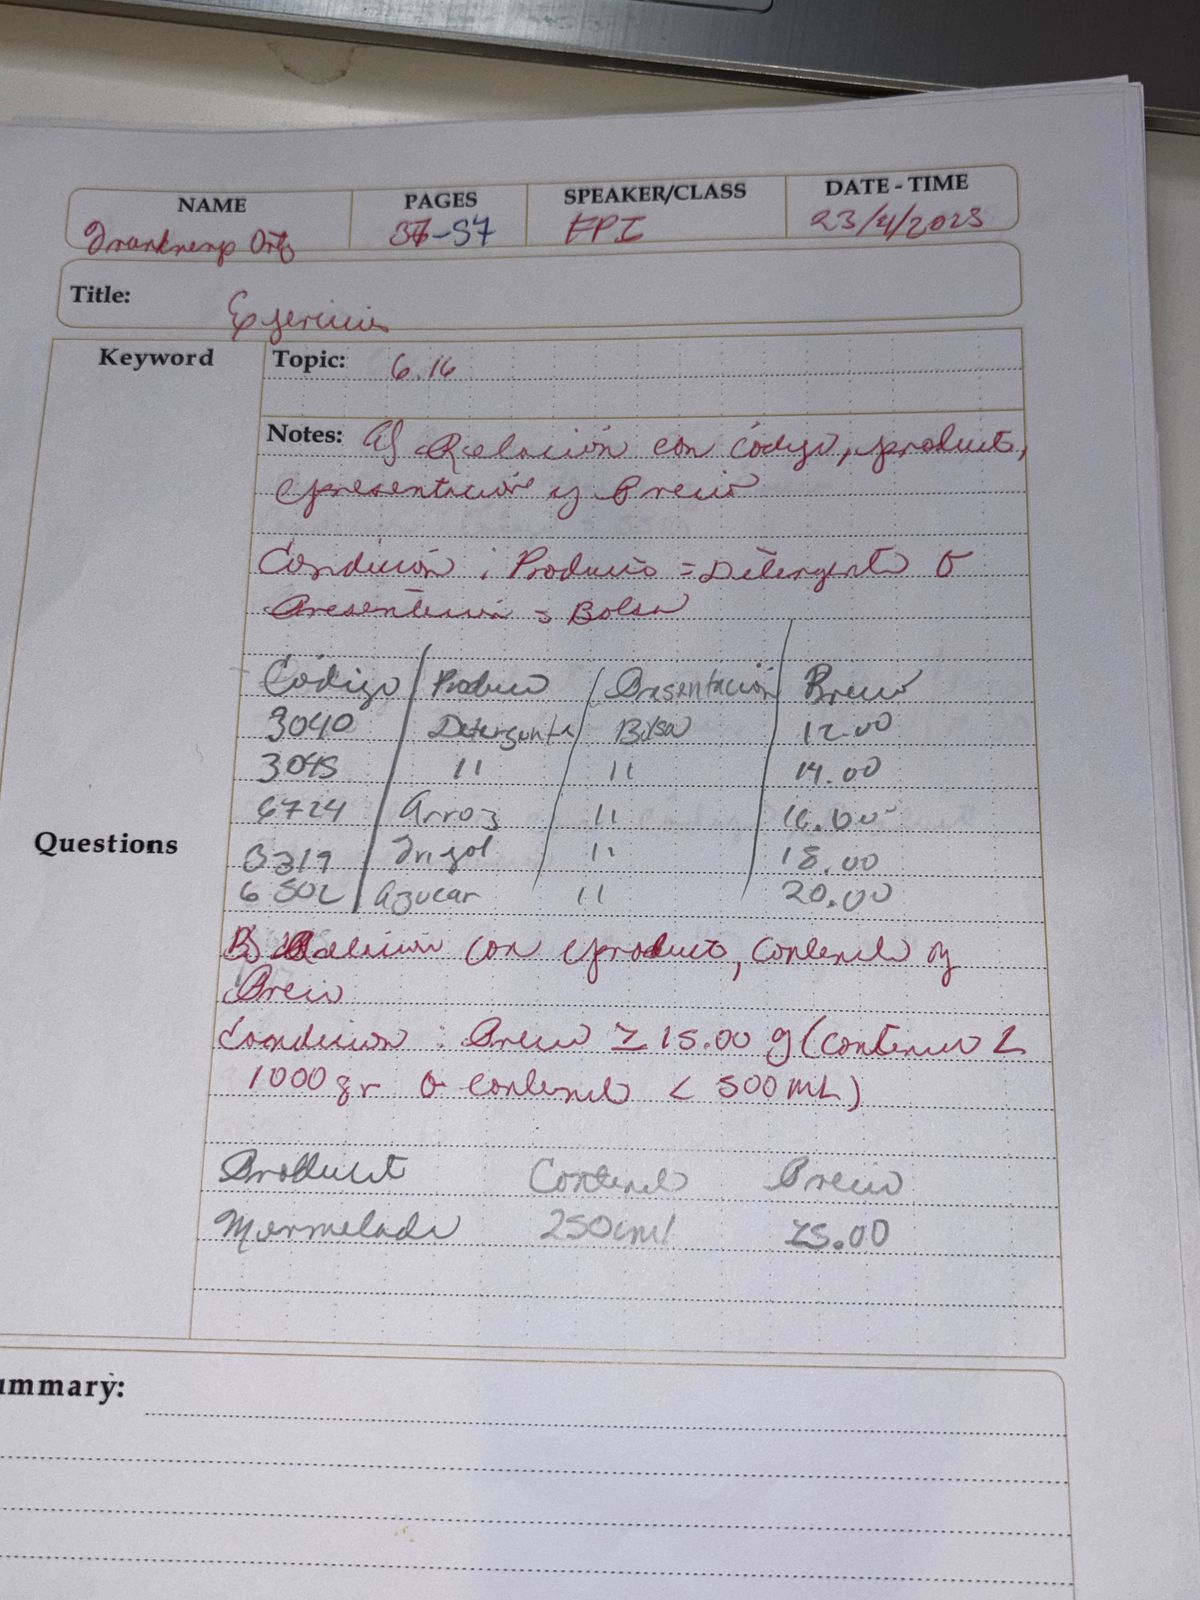 NAME PAGES SPEAKER/CLASS DATE - TIME
-57 FPI 23/4/2025
Title: Ejercicios
Keyword Topic: 6.16
Notes: A) Relación con código, producto,
presentación y Precio
Condición : Producto = Detergente o
Presentación = Bolsa
Código Producto Presentación Precio
3040 Detergente Bolsa 12.00
3045 11 11 14.00
6724 Arroz 11 16.00
3319 Frijol 11 18.00
6502 Azucar 11 20.00
Questions
B) Relacion con producto, Contenido y
Precio
Condicion : Precio ≥ 15.00 y (contenido <
1000 gr o contenido < 500 mL)
Producto Contenido Precio
Mermelada 250 ml 25.00
ummary: